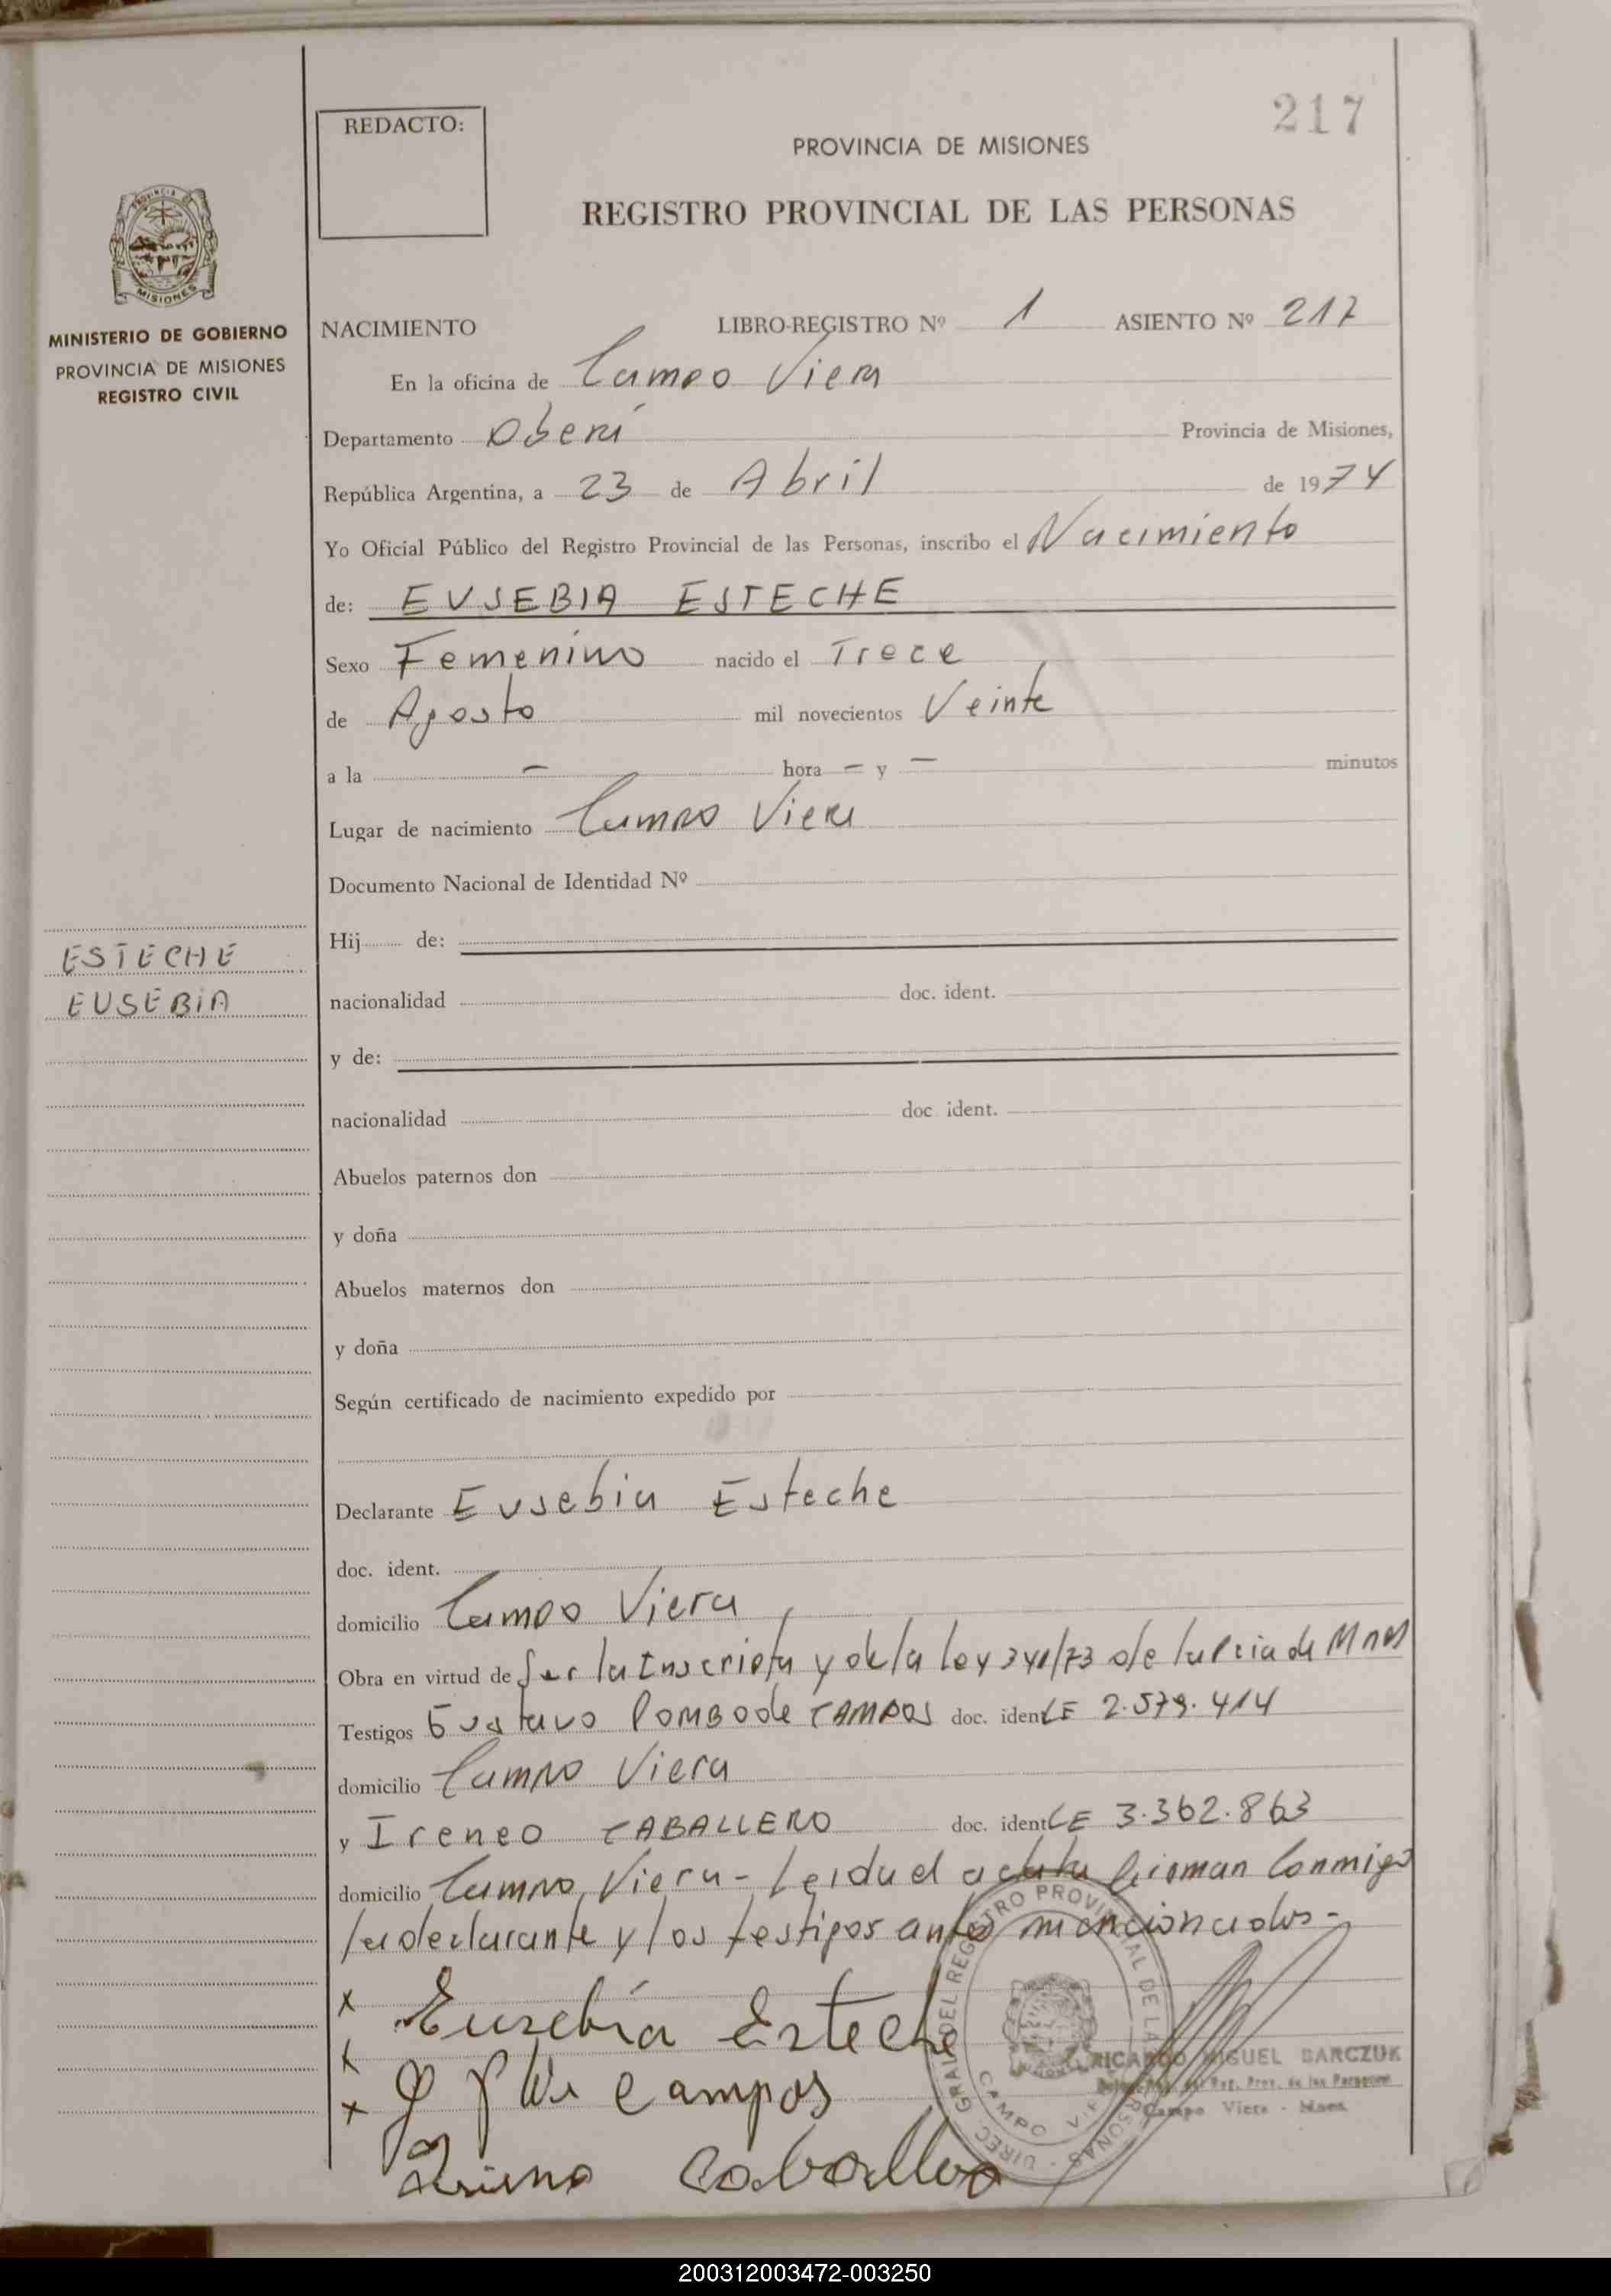 217
REDACTO:
PROVINCIA DE MISIONES
REGISTRO PROVINCIAL DE LAS PERSONAS
PROVINCIA
MISIONES
MINISTERIO DE GOBIERNO
PROVINCIA DE MISIONES
REGISTRO CIVIL
NACIMIENTO LIBRO-REGISTRO Nº 1 ASIENTO Nº 217
En la oficina de Campo Viera
Departamento Oberá Provincia de Misiones,
República Argentina, a 23 de Abril de 1974
Yo Oficial Público del Registro Provincial de las Personas, inscribo el Nacimiento
de: EUSEBIA ESTECHE
Sexo Femenino nacido el Trece
de Agosto mil novecientos Veinte
a la - hora - y - minutos
Lugar de nacimiento Campo Viera
Documento Nacional de Identidad Nº
Hij de:
ESTECHE
EUSEBIA
nacionalidad doc. ident.
y de:
nacionalidad doc ident.
Abuelos paternos don
y doña
Abuelos maternos don
y doña
Según certificado de nacimiento expedido por
Declarante Eusebia Esteche
doc. ident.
domicilio Campo Viera
Obra en virtud de Ser la Inscripta y de la ley 341/73 de la Pcia de Mnes
Testigos Gustavo POMBO de CAMPOS doc. ident LE 2.579.414
domicilio Campo Viera
y Ireneo CABALLERO doc. ident LE 3.362.863
domicilio Campo Viera - Leida el acta firman Conmigo
la declarante y los testigos antes mencionados -
x Eusebia Esteche
x Campos
x Caballero
DIREC. GRAL. DEL REGISTRO PROVINCIAL DE LAS PERSONAS
CAMPO
RICARDO MIGUEL BARCZUK
Reg. Prov. de las Personas
Campo Viera - Mnes
200312003472-003250